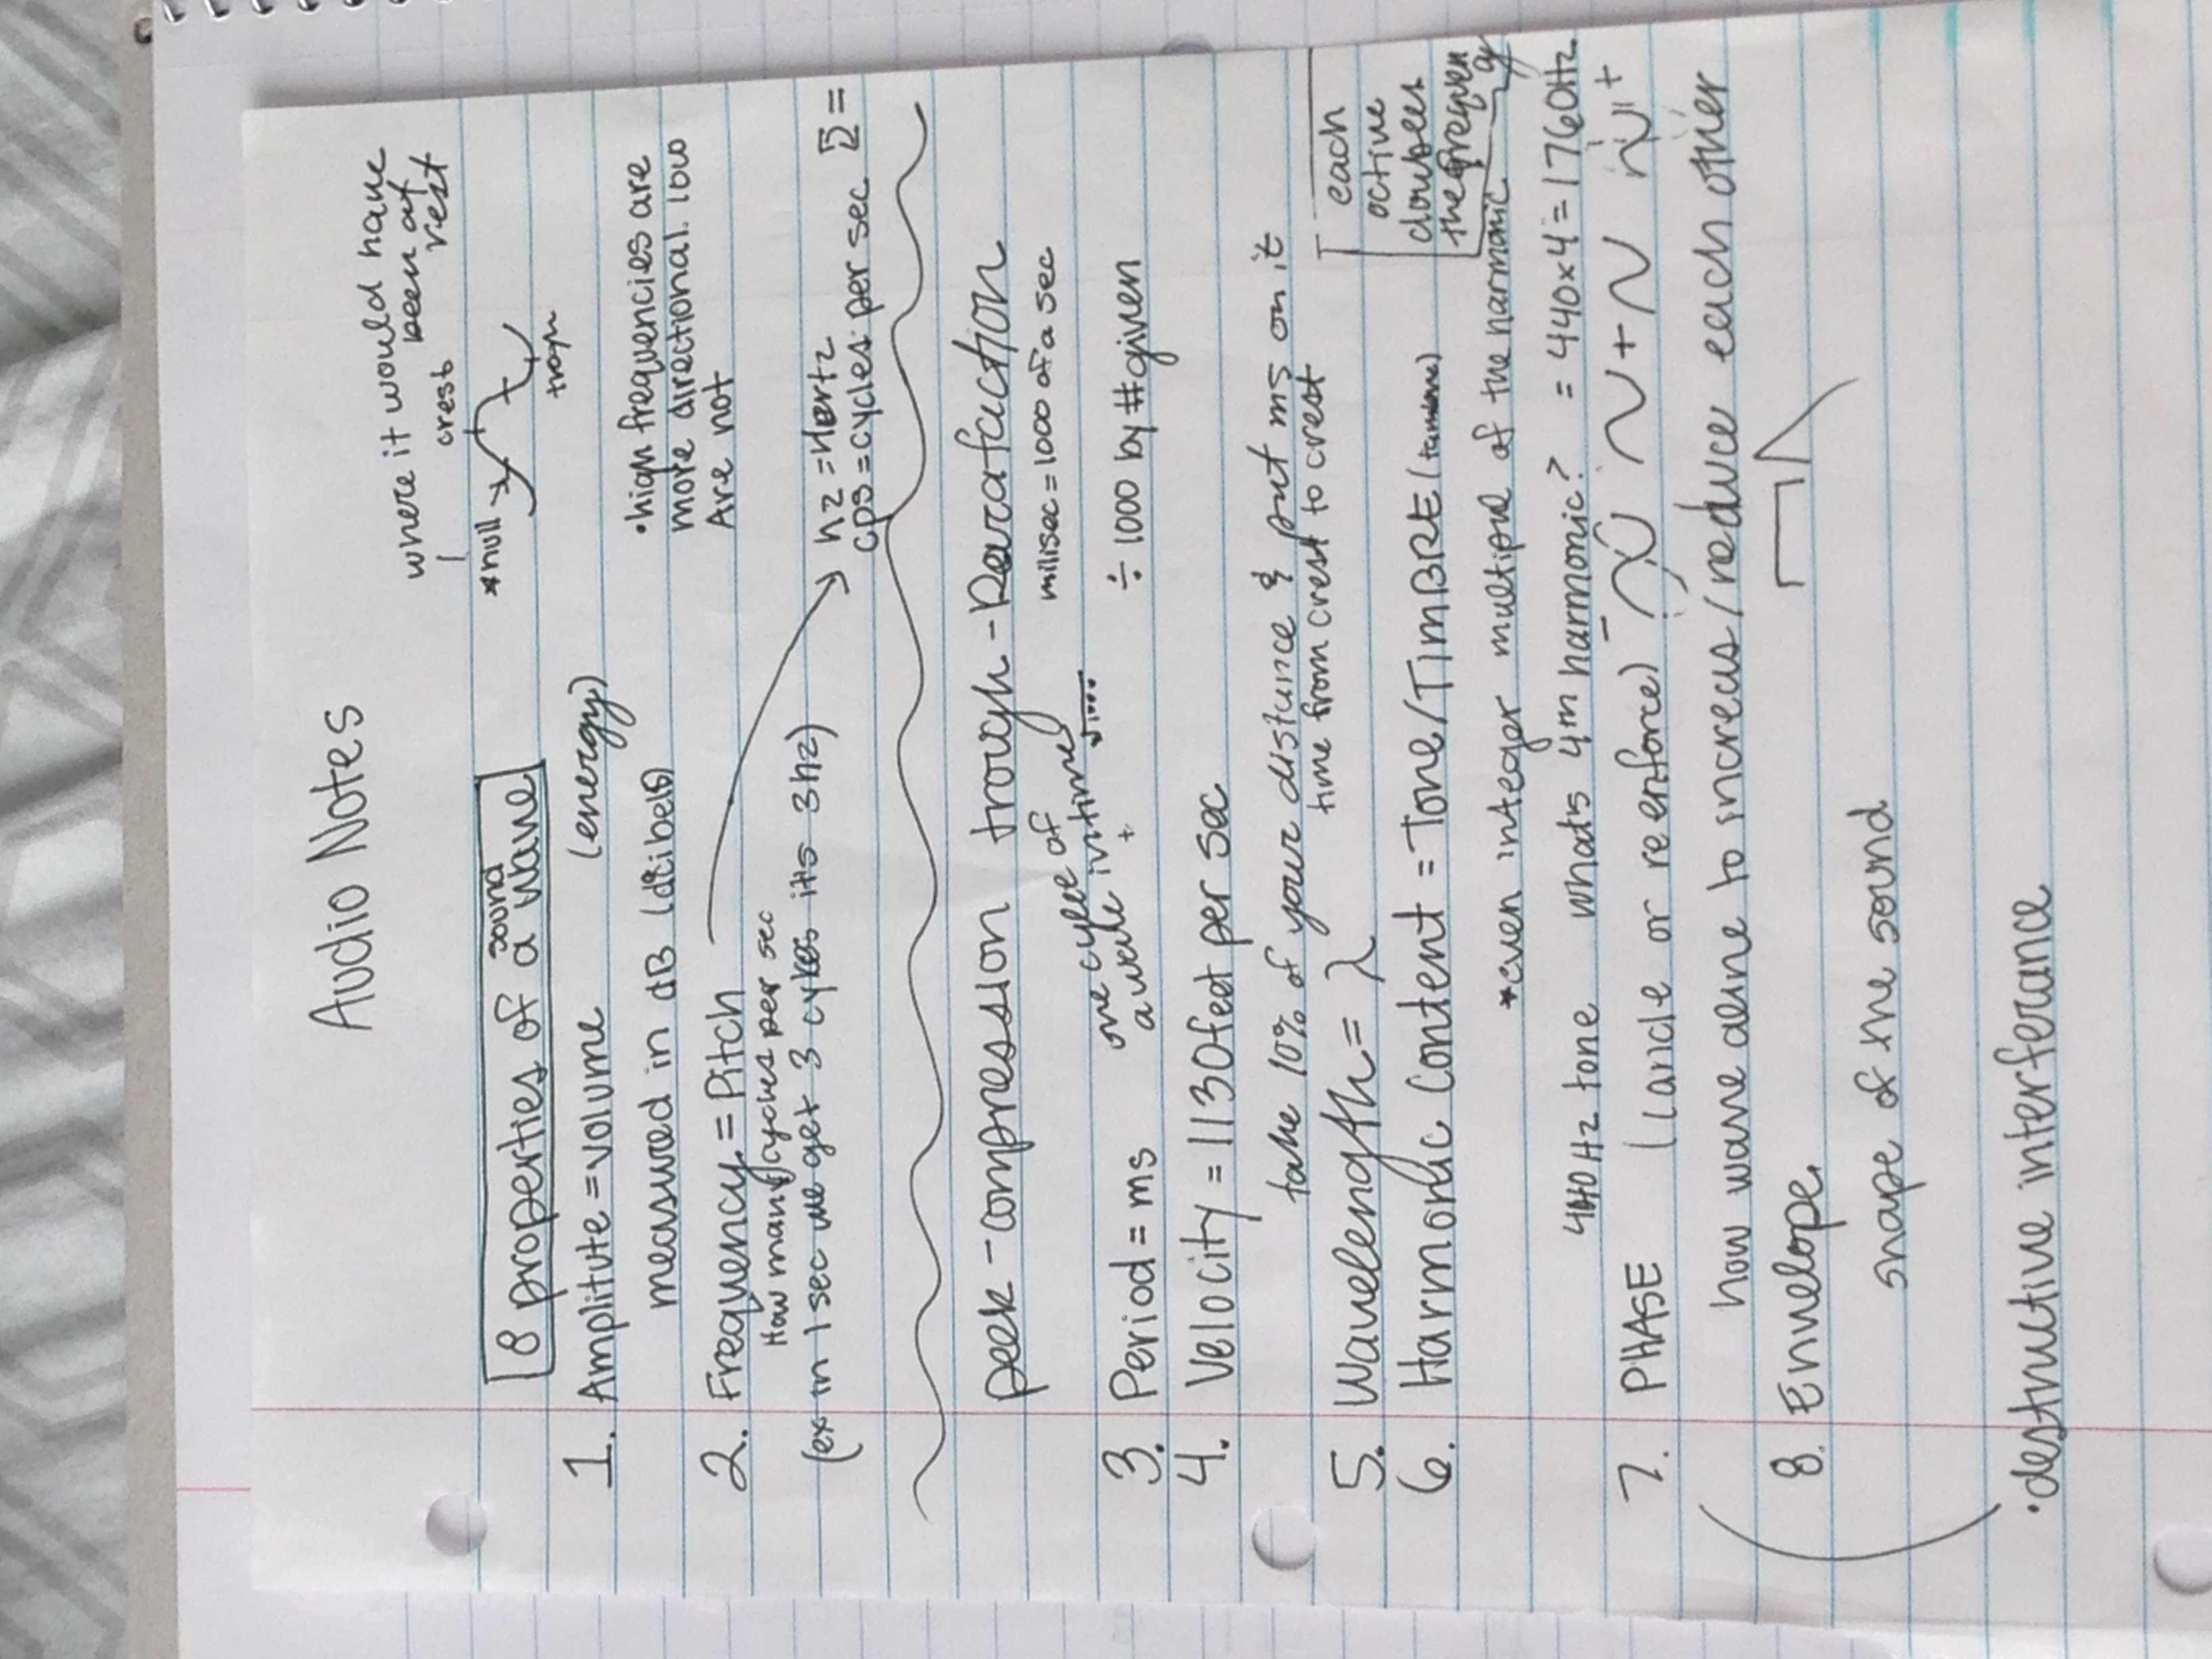 Audio Notes
where it would have
been at
rest
crest
*null
trogh
8 properties of a sound wave
1. Amplitute = volume (energy)
measured in dB (dcibels)
•high frequencies are
more directional. low
Are not
2. Frequency = Pitch
How many cycles per sec
(ex in 1 sec we get 3 cykes it's 3hz)
hz = Hertz
cps = cycles per sec =
peek - compression trough - Rarafaction
milisec = 1000 of a sec
one cycle of
a wave in time
3. Period = ms
÷ 1000 by # given
4. Velocity = 1130 feet per sec
take 10% of your distance & put ms on it
time from crest to crest
5. Wavelength = λ
each
octive
doubles
the frequency
6. Harmonic Content = Tone/TimBRE
*even integer multipul of the harmonic
440 Hz tone what's 4th harmonic? = 440x4 = 1760Hz
7. PHASE (cancle or reenforce) - + +
how wave aline to increas/reduce each other
8. Envelope
shape of the sound
•destructive interferance